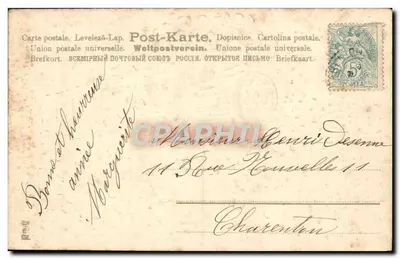 Carte postale. Levelezö-Lap. Post-Karte. Dopisnice. Cartolina postale.
Union postale universelle. Weltpostverein. Unione postale universale.
Brefkort. ВСЕМІРНЫЙ ПОЧТОВЫЙ СОЮЗЪ РОССІЯ. ОТКРЫТОЕ ПИСЬМО Briefkaart.
Bonne et heureuse
année
Marguerite
Monsieur Henri Desenne
11 Rue Nouvelles 11
Charenton